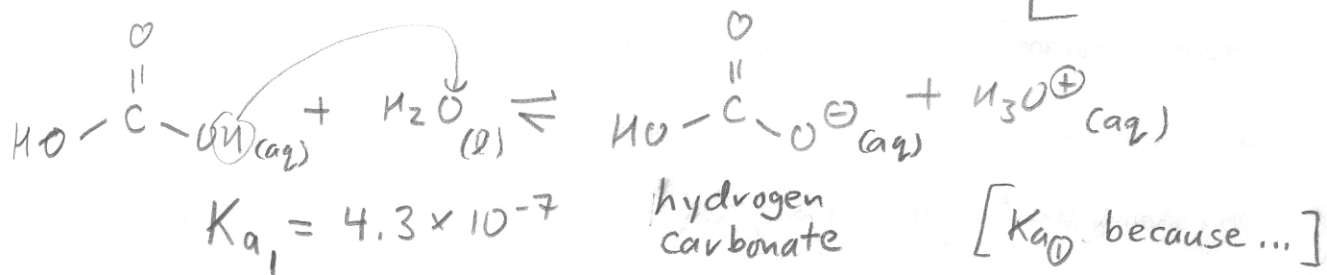 O O
|| ||
HO - C - OH(aq) + H₂O(l) ⇌ HO - C - O⊖(aq) + H₃O⊕(aq)
Ka₁ = 4.3 × 10⁻⁷ hydrogen carbonate [Ka① because ...]